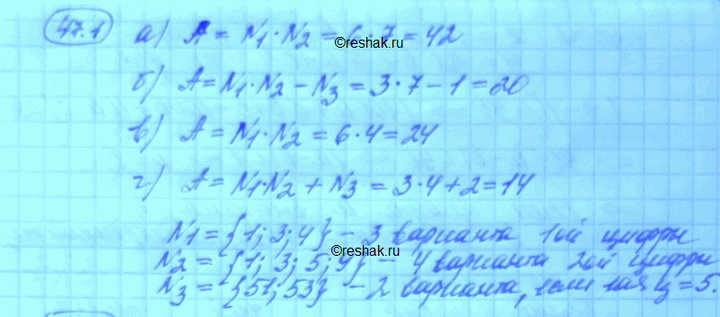 47.1 а) A = N1 · N2 = 6 · 7 = 42
©reshak.ru
б) A = N1 · N2 − N3 = 3 · 7 − 1 = 20
в) A = N1 · N2 = 6 · 4 = 24
г) A = N1 · N2 + N3 = 3 · 4 + 2 = 14
N1 = {1; 3; 4} − 3 варианта 1ой цифры
©reshak.ru
N2 = {1; 3; 5; 9} − 4 варианта 2ой цифры
N3 = {51; 53} − 2 варианта, если 1ая ц = 5.